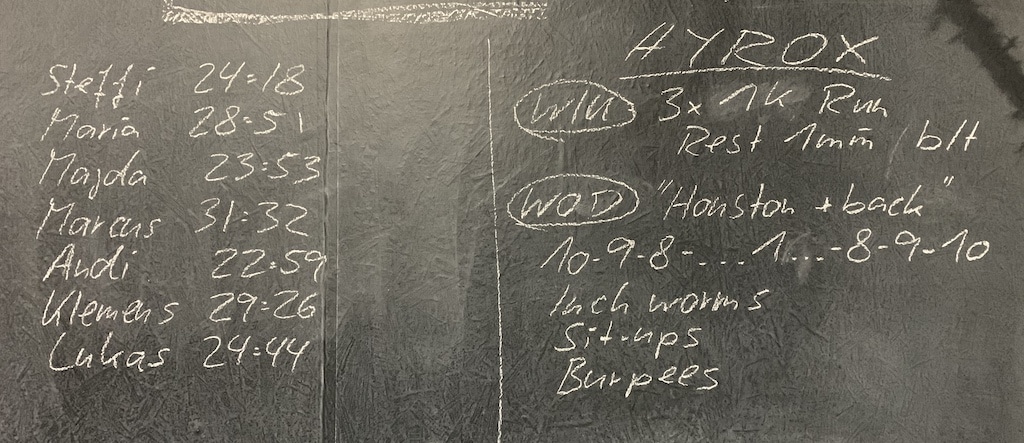 Steffi 24:18
Maria 28:51
Majda 23:53
Marcus 31:32
Andi 22:59
Klemens 29:26
Lukas 24:44
HYROX
WU 3x 1k Run
Rest 1min / btt
WOD "Houston + back"
10-9-8-...1...-8-9-10
Inch worms
Sit-ups
Burpees